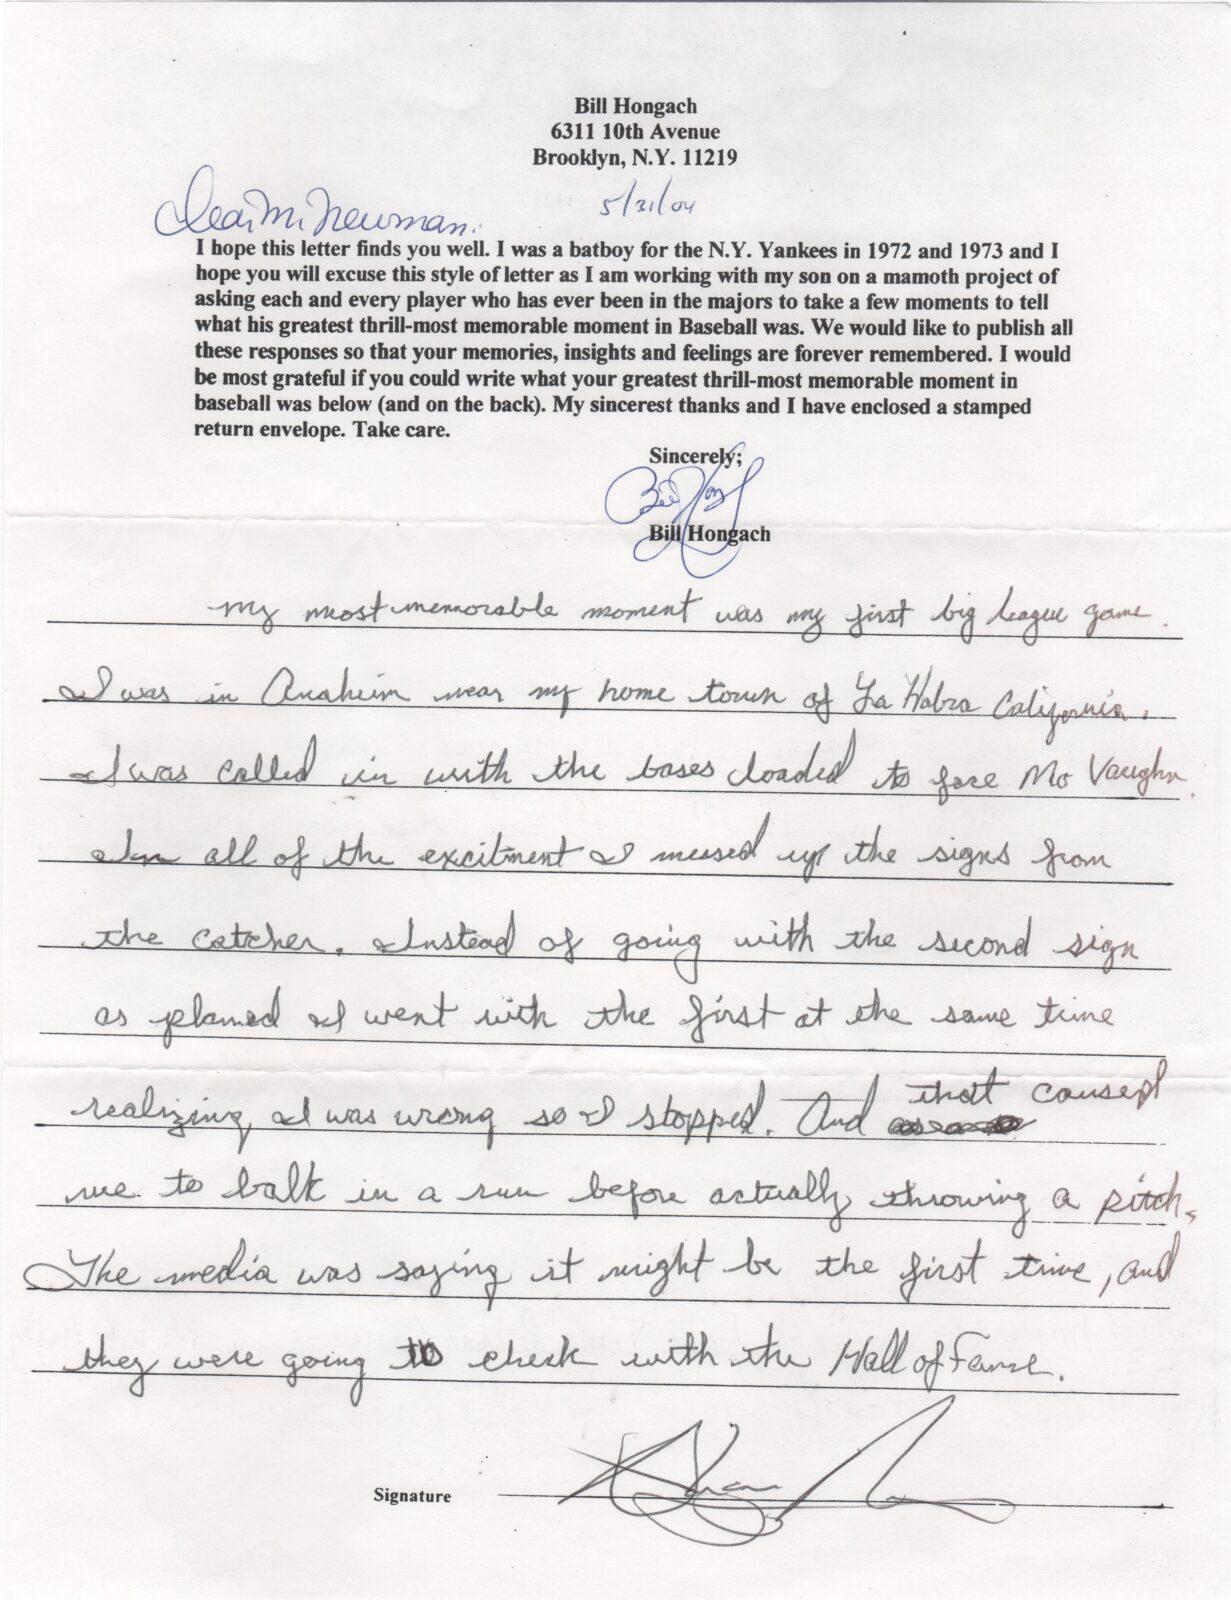 Bill Hongach
6311 10th Avenue
Brooklyn, N.Y. 11219
5/31/04
Dear Mr Newman:
I hope this letter finds you well. I was a batboy for the N.Y. Yankees in 1972 and 1973 and I
hope you will excuse this style of letter as I am working with my son on a mamoth project of
asking each and every player who has ever been in the majors to take a few moments to tell
what his greatest thrill-most memorable moment in Baseball was. We would like to publish all
these responses so that your memories, insights and feelings are forever remembered. I would
be most grateful if you could write what your greatest thrill-most memorable moment in
baseball was below (and on the back). My sincerest thanks and I have enclosed a stamped
return envelope. Take care.
Sincerely;
Bill Hongach
My most memorable moment was my first big league game.
I was in Anaheim near my home town of La Habra California.
I was called in with the bases loaded to face Mo Vaughn.
In all of the excitment I messed up the signs from
the catcher. Instead of going with the second sign
as planned I went with the first at the same time
realizing I was wrong so I stopped. And that caused
me to balk in a run before actually throwing a pitch.
The media was saying it might be the first time, and
they were going to check with the Hall of Fame.
Signature